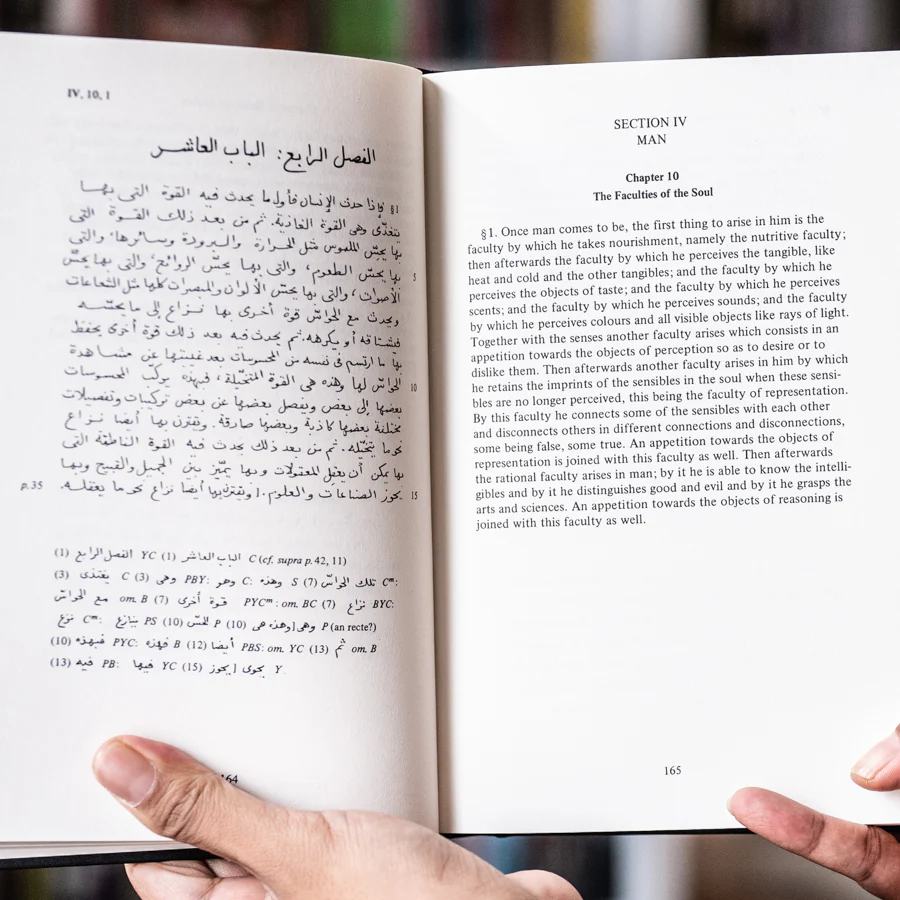 IV, 10, 1
الفصل الرابع: الباب العاشر
§1 فإذا حدث الإنسان فأول ما يحدث فيه القوة التى بها
يتغذّى وهى القوة الغاذية. ثم من بعد ذلك القوة التى
بها يحسّ الملموس مثل الحرارة والبرودة وسائرها، والتى
بها يحسّ الطعوم، والتى بها يحسّ الروائح، والتى بها يحسّ 5
الأصوات، والتى بها يحسّ الألوان والمبصرات كلها مثل الشعاعات
ويحدث مع الحواسّ قوة أخرى بها نزاع إلى ما يحسّه
فيشتاقه أو يكرهه. ثم يحدث فيه بعد ذلك قوة أخرى يحفظ
بها ما ارتسم فى نفسه من المحسوسات بعد غيبتها عن مشاهدة
الحواسّ لها وهذه هى القوة المتخيّلة، فبهذه يركّب المحسوسات 10
بعضها إلى بعض ويفصل بعضها عن بعض تركيبات وتفصيلات
مختلفة بعضها كاذبة وبعضها صادقة. ويقترن بها أيضا نزاع
نحو ما يتخيّله. ثم من بعد ذلك يحدث فيه القوة الناطقة التى
بها يمكن أن يعقل المعقولات وبها يميّز بين الجميل والقبيح وبها
p.35 يحوز الصناعات والعلوم. ويقترن بها أيضا نزاع نحو ما يعقله. 15
(1) الفصل الرابع YC (1) الباب العاشر C (cf. supra p. 42, 11)
(3) يغتذى C (3) وهى PBY: وهو C: وهذه S (7) تلك الحواسّ Cᵐ:
مع الحواسّ om. B (7) قوة أخرى PYCᵐ: om. BC (7) نزاع BYC:
نزع Cᵐ: ينازع PS (10) للحسّ P (10) وهى] وهذه هى P (an recte?)
(10) فبهذه PYC: فهذه B (12) أيضا PBS: om. YC (13) ثم om. B
(13) فيه PB: فيها YC (15) يحوز] يحوى Y.
164
SECTION IV
MAN
Chapter 10
The Faculties of the Soul
§1. Once man comes to be, the first thing to arise in him is the
faculty by which he takes nourishment, namely the nutritive faculty;
then afterwards the faculty by which he perceives the tangible, like
heat and cold and the other tangibles; and the faculty by which he
perceives the objects of taste; and the faculty by which he perceives
scents; and the faculty by which he perceives sounds; and the faculty
by which he perceives colours and all visible objects like rays of light.
Together with the senses another faculty arises which consists in an
appetition towards the objects of perception so as to desire or to
dislike them. Then afterwards another faculty arises in him by which
he retains the imprints of the sensibles in the soul when these sensi-
bles are no longer perceived, this being the faculty of representation.
By this faculty he connects some of the sensibles with each other
and disconnects others in different connections and disconnections,
some being false, some true. An appetition towards the objects of
representation is joined with this faculty as well. Then afterwards
the rational faculty arises in man; by it he is able to know the intelli-
gibles and by it he distinguishes good and evil and by it he grasps the
arts and sciences. An appetition towards the objects of reasoning is
joined with this faculty as well.
165